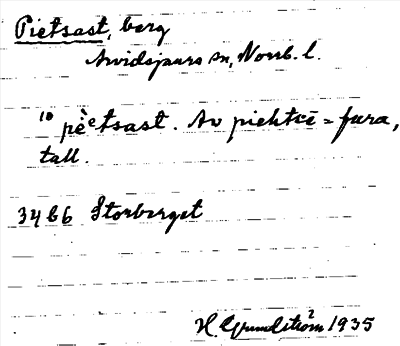 Pietsast, berg
Arvidsjaurs sn, Norrb. l.
10 pèetsast. Av piehtsē = fura,
tall.
3466 Storberget
H Grundström 1935